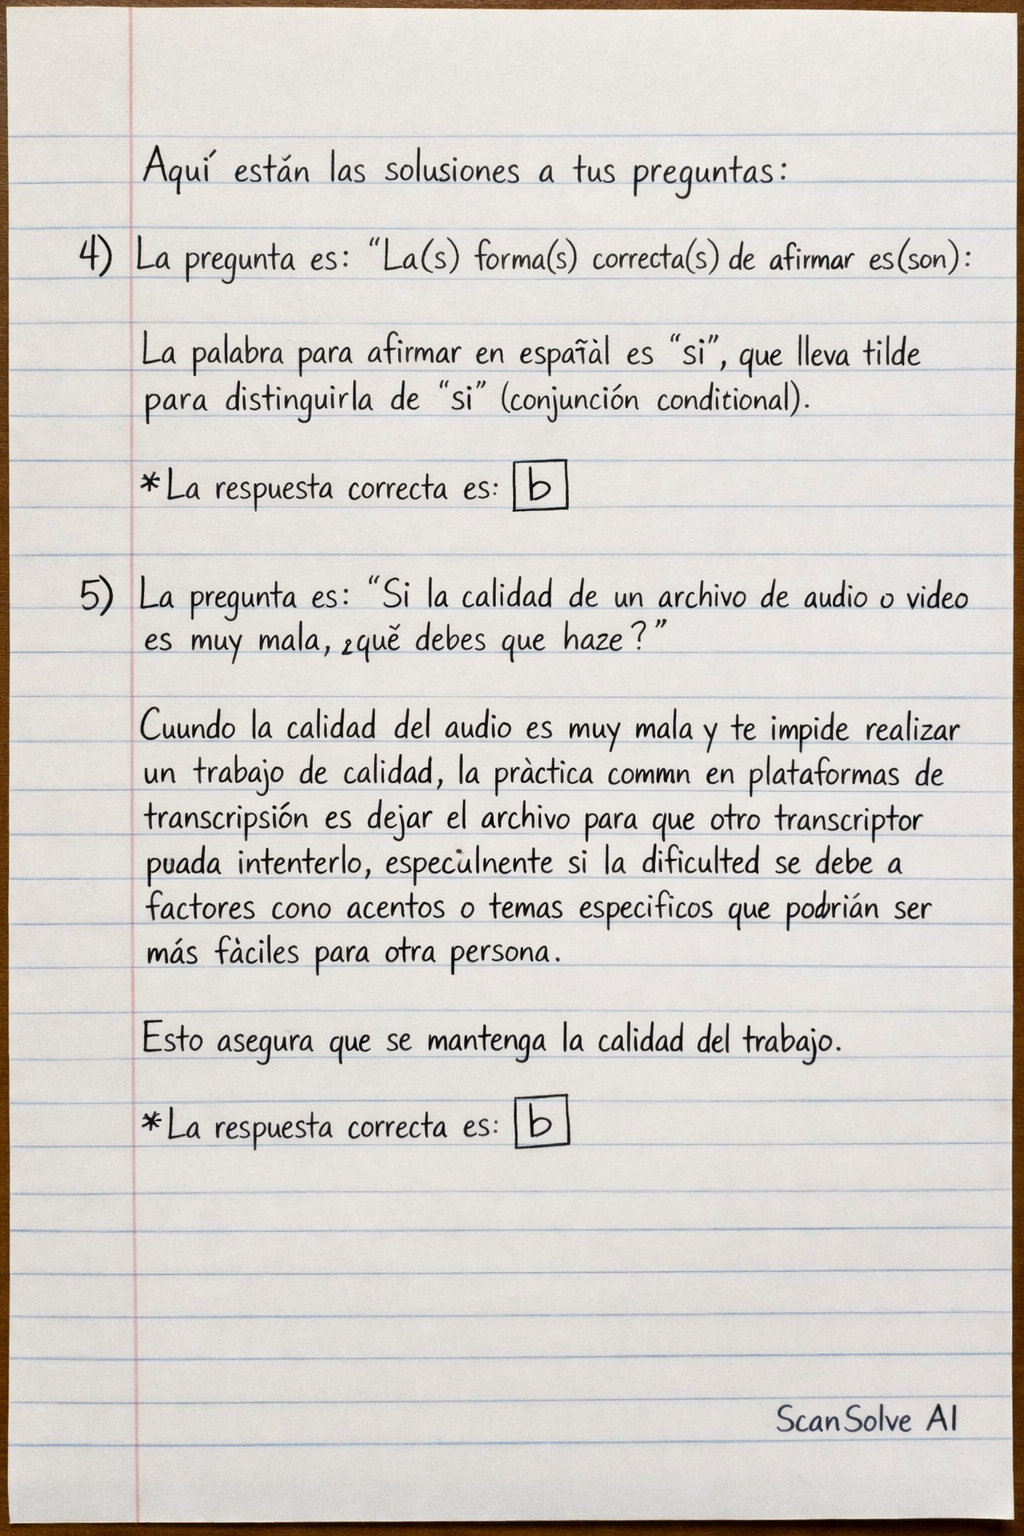 Aquí están las solusiones a tus preguntas:
4) La pregunta es: “La(s) forma(s) correcta(s) de afirmar es(son):
La palabra para afirmar en espan̄̃àl es “si”, que lleva tilde
para distinguirla de “si” (conjunción conditional).
*La respuesta correcta es: b
5) La pregunta es: “Si la calidad de un archivo de audio o video
es muy mala, ¿quĕ debes que haze?”
Cuundo la calidad del audio es muy mala y te impide realizar
un trabajo de calidad, la pràctica commn en plataformas de
transcripsión es dejar el archivo para que otro transcriptor
puada intenterlo, especìulnente si la dificulted se debe a
factores cono acentos o temas especificos que podrián ser
más fàciles para otra persona.
Esto asegura que se mantenga la calidad del trabajo.
*La respuesta correcta es: b
ScanSolve AI